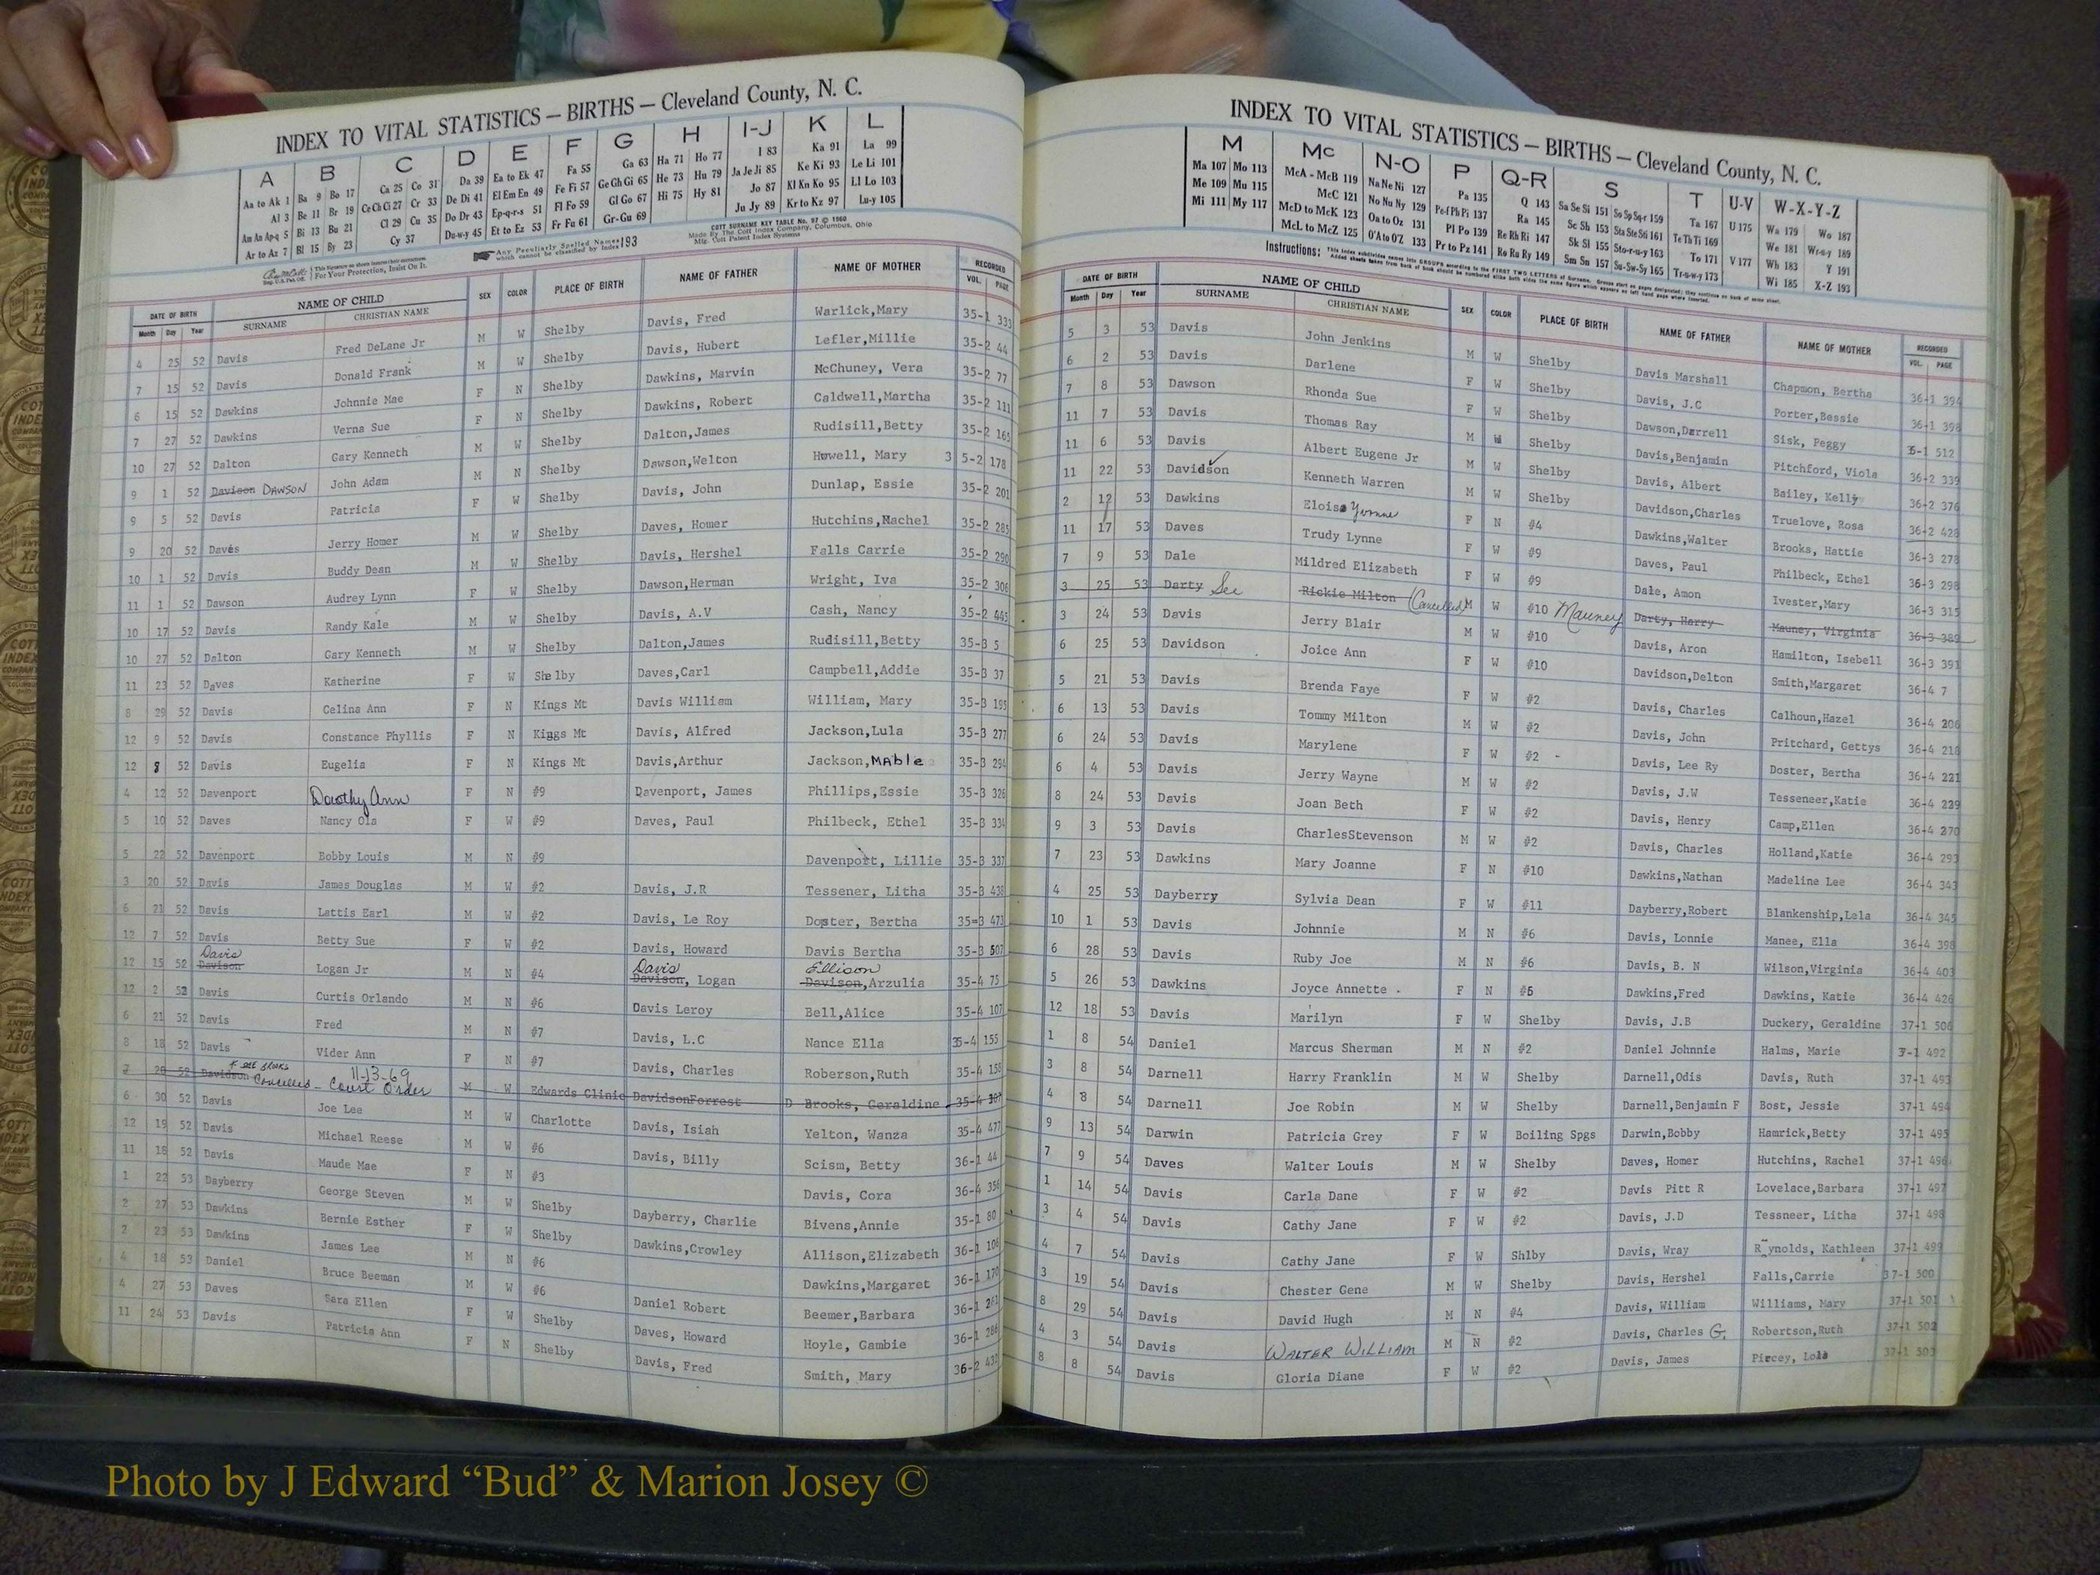 INDEX TO VITAL STATISTICS — BIRTHS — Cleveland County, N. C.
A B C D E F G H I-J K L
Aa to Ak 1 Ba 9 Bo 17 Ca 25 Co 31 Da 39 Ea to Ek 47 Fa 55 Ga 63 Ha 71 Ho 77 I 83 Ka 91 La 99
Al 3 Be 11 Br 19 Ce Ch Ci 27 Cr 33 De Di 41 El Em En 49 Fe Fi 57 Ge Gh Gi 65 He 73 Hu 79 Ja Je Ji 85 Ke Ki 93 Le Li 101
Am An Ap-q 5 Bi 13 Bu 21 Cl 29 Cu 35 Do Dr 43 Ep-q-r-s 51 Fl Fo 59 Gl Go 67 Hi 75 Hy 81 Jo 87 Kl Kn Ko 95 Ll Lo 103
Ar to Az 7 Bl 15 By 23 Cy 37 Du-w-y 45 Et to Ez 53 Fr Fu 61 Gr-Gu 69 Ju Jy 89 Kr to Kz 97 Lu-y 105
This Signature on sheets insures their correctness. For Your Protection, Insist On It.
Any Peculiarly Spelled Names which cannot be classified by Index 193
COTT SURNAME KEY TABLE No. 97 © 1960
Made By The Cott Index Company, Columbus, Ohio
Mfg. Cott Patent Index Systems
DATE OF BIRTH NAME OF CHILD SEX COLOR PLACE OF BIRTH NAME OF FATHER NAME OF MOTHER RECORDED
Month Day Year SURNAME CHRISTIAN NAME VOL. PAGE
4 25 52 Davis Fred DeLane Jr M W Shelby Davis, Fred Warlick,Mary 35-1 333
7 15 52 Davis Donald Frank M W Shelby Davis, Hubert Lefler,Millie 35-2 44
6 15 52 Dawkins Johnnie Mae F N Shelby Dawkins, Marvin McChuney, Vera 35-2 77
7 27 52 Dawkins Verna Sue F N Shelby Dawkins, Robert Caldwell,Martha 35-2 111
10 27 52 Dalton Gary Kenneth M W Shelby Dalton,James Rudisill,Betty 35-2 165
9 1 52 Davison DAWSON John Adam M N Shelby Dawson,Welton Howell, Mary 3 5-2 178
9 5 52 Davis Patricia F W Shelby Davis, John Dunlap, Essie 35-2 201
9 20 52 Daves Jerry Homer M W Shelby Daves, Homer Hutchins,Rachel 35-2 285
10 1 52 Davis Buddy Dean M W Shelby Davis, Hershel Falls Carrie 35-2 290
11 1 52 Dawson Audrey Lynn F W Shelby Dawson,Herman Wright, Iva 35-2 306
10 17 52 Davis Randy Kale M W Shelby Davis, A.V Cash, Nancy 35-2 445
10 27 52 Dalton Gary Kenneth M W Shelby Dalton,James Rudisill,Betty 35-3 5
11 23 52 Daves Katherine F W Shelby Daves,Carl Campbell,Addie 35-3 37
8 29 52 Davis Celina Ann F N Kings Mt Davis William William, Mary 35-3 195
12 9 52 Davis Constance Phyllis F N Kiggs Mt Davis, Alfred Jackson,Lula 35-3 277
12 8 52 Davis Eugelia F N Kings Mt Davis,Arthur Jackson,MAble 35-3 294
4 12 52 Davenport Dorothy Ann F N #9 Davenport, James Phillips,Essie 35-3 326
5 10 52 Daves Nancy Ola F W #9 Daves, Paul Philbeck, Ethel 35-3 334
5 22 52 Davenport Bobby Louis M N #9 Davenport, Lillie 35-3 337
3 20 52 Davis James Douglas M W #2 Davis, J.R Tessener, Litha 35-3 438
6 21 52 Davis Lattis Earl M W #2 Davis, Le Roy Doster, Bertha 35-3 473
12 7 52 Davis Betty Sue F W #2 Davis, Howard Davis Bertha 35-3 507
12 15 52 Davison Davis Logan Jr M N #4 Davison Davis, Logan Davison Ellison,Arzulia 35-4 75
12 2 52 Davis Curtis Orlando M N #6 Davis Leroy Bell,Alice 35-4 107
6 21 52 Davis Fred M N #7 Davis, L.C Nance Ella 35-4 155
8 18 52 Davis Vider Ann F N #7 Davis, Charles Roberson,Ruth 35-4 158
7 28 52 Davidson * SEE BROOKS Cancelled - Court Order 11-13-69 M W Edwards Clinic DavidsonForrest D Brooks, Geraldine 35-4 387
6 30 52 Davis Joe Lee M W Charlotte Davis, Isiah Yelton, Wanza 35-4 477
12 19 52 Davis Michael Reese M W #6 Davis, Billy Scism, Betty 36-1 44
11 18 52 Davis Maude Mae F N #3 Davis, Cora 36-4 356
1 22 53 Dayberry George Steven M W Shelby Dayberry, Charlie Bivens,Annie 35-1 80
2 27 53 Dawkins Bernie Esther F W Shelby Dawkins,Crowley Allison,Elizabeth 36-1 106
2 23 53 Dawkins James Lee M N #6 Dawkins,Margaret 36-1 170
4 18 53 Daniel Bruce Beeman M W #6 Daniel Robert Beemer,Barbara 36-1
4 27 53 Daves Sara Ellen F W Shelby Daves, Howard Hoyle, Gambie 36-1 286
11 24 53 Davis Patricia Ann F N Shelby Davis, Fred Smith, Mary 36-2 432
INDEX TO VITAL STATISTICS — BIRTHS — Cleveland County, N. C.
M Mc N-O P Q-R S T U-V W-X-Y-Z
Ma 107 Mo 113 McA - McB 119 Na Ne Ni 127 Pa 135 Q 143 Sa Se Si 151 So Sp Sq-r 159 Ta 167 U 175 Wa 179 Wo 187
Me 109 Mu 115 McC 121 No Nu Ny 129 Pe-f Ph Pi 137 Ra 145 Sc Sh 153 Sta Ste Sti 161 Te Th Ti 169 We 181 Wr-u-y 189
Mi 111 My 117 McD to McK 123 Oa to Oz 131 Pl Po 139 Re Rh Ri 147 Sk Sl 155 Sto-r-u-y 163 To 171 V 177 Wh 183 Y 191
McL to McZ 125 O'A to O'Z 133 Pr to Pz 141 Ro Ru Ry 149 Sm Sn 157 Su-Sw-Sy 165 Tr-u-w-y 173 Wi 185 X-Z 193
Instructions: This index subdivides names into GROUPS according to the FIRST TWO LETTERS of Surname. Groups start on pages designated; they continue on back of same sheet.
Added sheets taken from back of book should be numbered alike both sides the same figure which appears on left hand page where inserted.
DATE OF BIRTH NAME OF CHILD SEX COLOR PLACE OF BIRTH NAME OF FATHER NAME OF MOTHER RECORDED
Month Day Year SURNAME CHRISTIAN NAME VOL. PAGE
5 3 53 Davis John Jenkins M W Shelby Davis Marshall Chapmon, Bertha 36-1 394
6 2 53 Davis Darlene F W Shelby Davis, J.C Porter,Bessie 36-1 398
7 8 53 Dawson Rhonda Sue F W Shelby Dawson,Darrell Sisk, Peggy 36-1 512
11 7 53 Davis Thomas Ray M W Shelby Davis,Benjamin Pitchford, Viola 36-2 339
11 6 53 Davis Albert Eugene Jr M W Shelby Davis, Albert Bailey, Kelly 36-2 376
11 22 53 Davidson Kenneth Warren M W Shelby Davidson,Charles Truelove, Rosa 36-2 428
2 12 53 Dawkins Eloise Yvonne F N #4 Dawkins,Walter Brooks, Hattie 36-3 278
11 17 53 Daves Trudy Lynne F W #9 Daves, Paul Philbeck, Ethel 36-3 298
7 9 53 Dale Mildred Elizabeth F W #9 Dale, Amon Ivester,Mary 36-3 315
3 25 53 Darty See Rickie Milton (Cancelled) M W #10 Mauney Darty, Harry Mauney, Virginia 36-3 389
3 24 53 Davis Jerry Blair M W #10 Davis, Aron Hamilton, Isebell 36-3 391
6 25 53 Davidson Joice Ann F W #10 Davidson,Delton Smith,Margaret 36-4 7
5 21 53 Davis Brenda Faye F W #2 Davis, Charles Calhoun,Hazel 36-4 206
6 13 53 Davis Tommy Milton M W #2 Davis, John Pritchard, Gettys 36-4 218
6 24 53 Davis Marylene F W #2 Davis, Lee Ry Doster, Bertha 36-4 221
6 4 53 Davis Jerry Wayne M W #2 Davis, J.W Tesseneer,Katie 36-4 229
8 24 53 Davis Joan Beth F W #2 Davis, Henry Camp,Ellen 36-4 270
9 3 53 Davis CharlesStevenson M W #2 Davis, Charles Holland,Katie 36-4 293
7 23 53 Dawkins Mary Joanne F N #10 Dawkins,Nathan Madeline Lee 36-4 343
4 25 53 Dayberry Sylvia Dean F W #11 Dayberry,Robert Blankenship,Lela 36-4 345
10 1 53 Davis Johnnie M N #6 Davis, Lonnie Manee, Ella 36-4 398
6 28 53 Davis Ruby Joe M N #6 Davis, B. N Wilson,Virginia 36-4 403
5 26 53 Dawkins Joyce Annette F N #6 Dawkins,Fred Dawkins, Katie 36-4 426
12 18 53 Davis Marilyn F W Shelby Davis, J.B Duckery, Geraldine 37-1 506
1 8 54 Daniel Marcus Sherman M N #2 Daniel Johnnie Halms, Marie 37-1 492
3 8 54 Darnell Harry Franklin M W Shelby Darnell,Odis Davis, Ruth 37-1 493
4 8 54 Darnell Joe Robin M W Shelby Darnell,Benjamin F Bost, Jessie 37-1 494
9 13 54 Darwin Patricia Grey F W Boiling Spgs Darwin,Bobby Hamrick,Betty 37-1 495
7 9 54 Daves Walter Louis M W Shelby Daves, Homer Hutchins, Rachel 37-1 496
1 14 54 Davis Carla Dane F W #2 Davis Pitt R Lovelace,Barbara 37-1 497
3 4 54 Davis Cathy Jane F W #2 Davis, J.D Tessneer, Litha 37-1 498
4 7 54 Davis Cathy Jane F W Shlby Davis, Wray Reynolds, Kathleen 37-1 499
3 19 54 Davis Chester Gene M W Shelby Davis, Hershel Falls,Carrie 37-1 500
8 29 54 Davis David Hugh M N #4 Davis, William Williams, Mary 37-1 501
4 3 54 Davis WALTER WILLIAM M N #2 Davis, Charles G. Robertson,Ruth 37-1 502
8 8 54 Davis Gloria Diane F W #2 Davis, James Piercey, Lola 37-1 503
Photo by J Edward “Bud” & Marion Josey ©